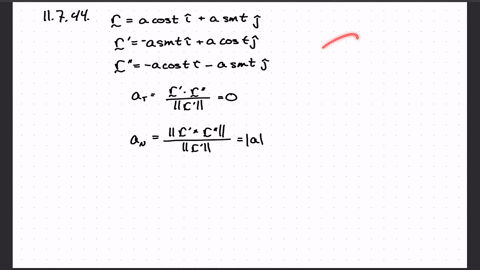 11.7.44. r = a cos t î + a sin t ĵ
r' = -a sin t î + a cos t ĵ
r" = -a cos t î - a sin t ĵ
a_T = r' · r" / ||r'|| = 0
a_N = ||r' × r"|| / ||r'|| = |a|